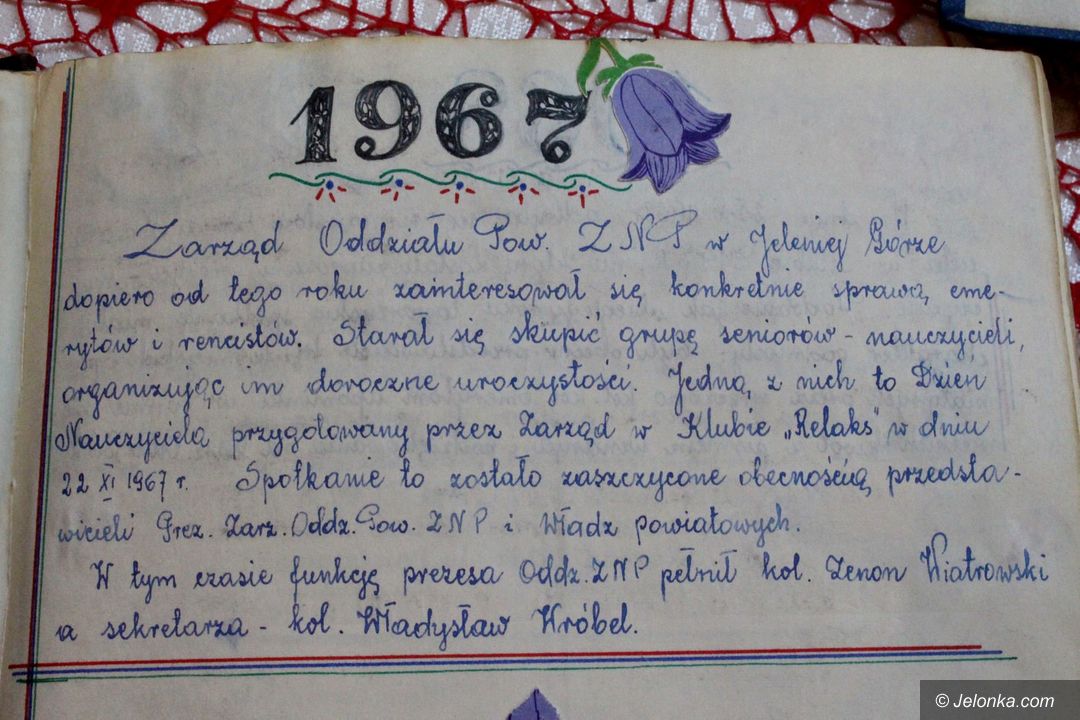 1967
Zarząd Oddziału Pow. ZNP w Jeleniej Górze
dopiero od tego roku zainteresował się konkretnie sprawą eme-
rytów i rencistów. Starał się skupić grupę seniorów - nauczycieli,
organizując im doroczne uroczystości. Jedną z nich to Dzień
Nauczyciela przygotowany przez Zarząd w Klubie „Relaks” w dniu
22 XI 1967 r. Spotkanie to zostało zaszczycone obecnością przedsta-
wicieli Prez. Zarz. Oddz. Pow. ZNP i Władz powiatowych.
W tym czasie funkcję prezesa Oddz. ZNP pełnił kol. Zenon Wiatrowski
a sekretarza - kol. Władysław Wróbel.
© Jelonka.com